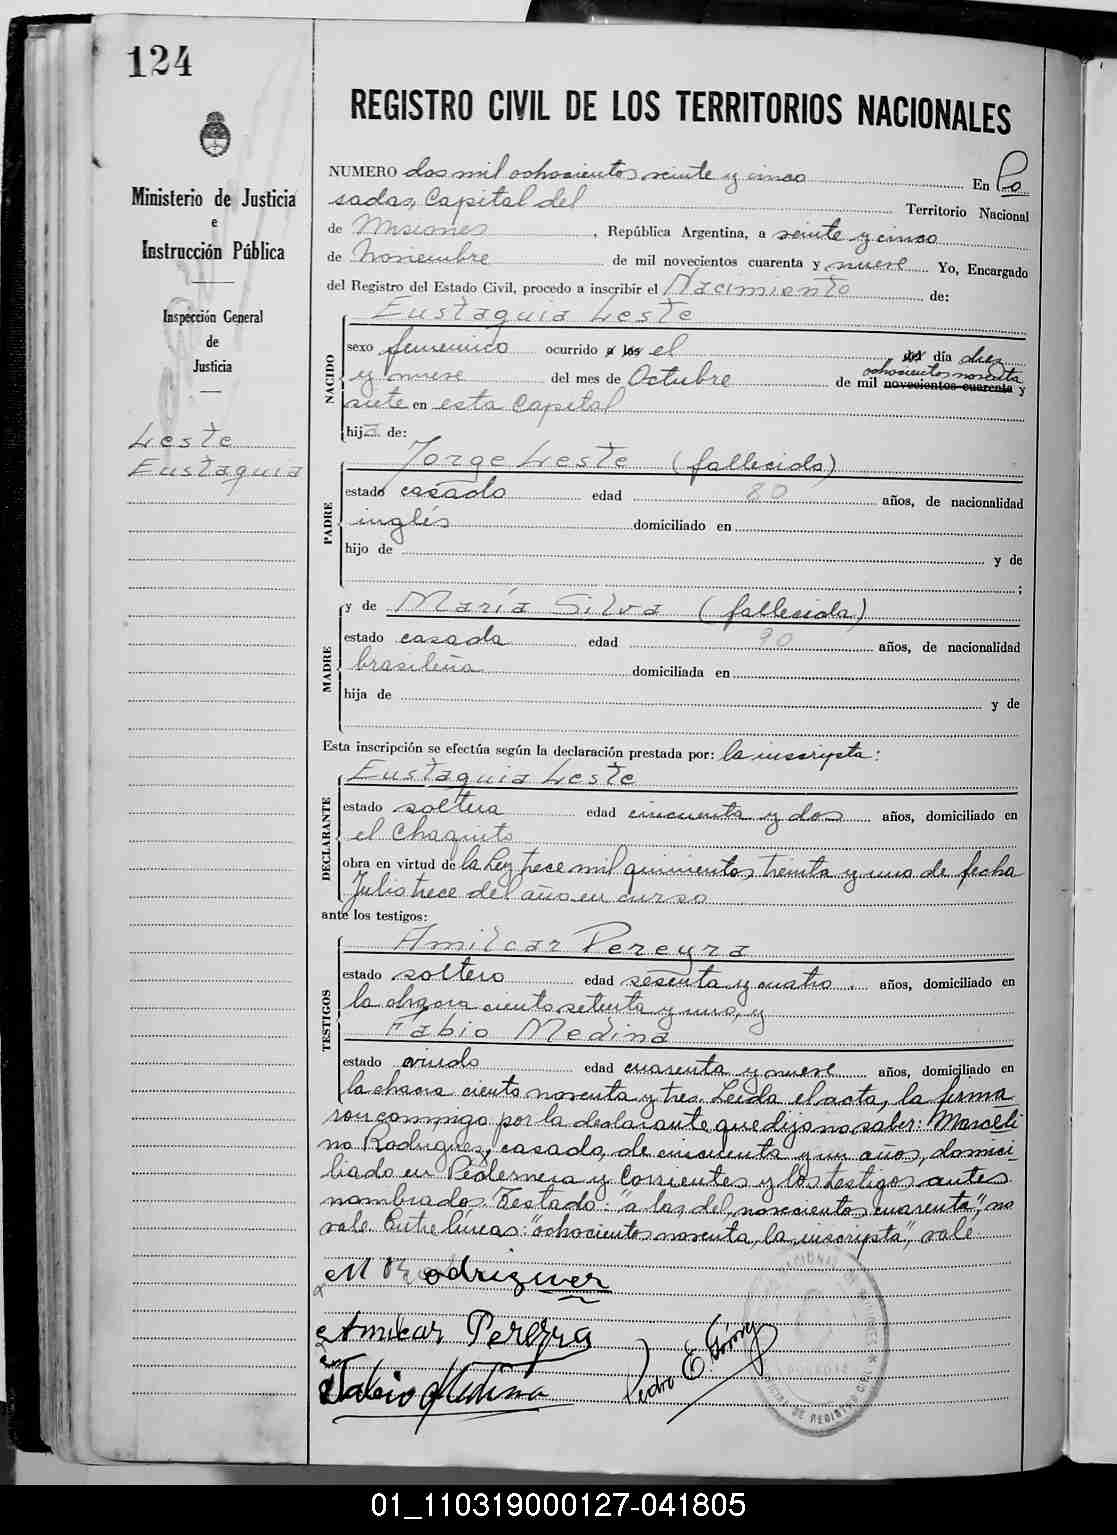 124
REGISTRO CIVIL DE LOS TERRITORIOS NACIONALES
Ministerio de Justicia
e
Instrucción Pública
Inspección General
de
Justicia
Leste
Eustaquia
NUMERO dos mil ochocientos veinte y cinco En Po
sadas, Capital del Territorio Nacional
de Misiones, República Argentina, a veinte y cinco
de Noviembre de mil novecientos cuarenta y nueve Yo, Encargado
del Registro del Estado Civil, procedo a inscribir el Nacimiento de:
Eustaquia Leste
NACIDO
sexo femenino ocurrido a las el del día diez
ochocientos noventa
y nueve del mes de Octubre de mil novecientos cuarenta y
siete en esta Capital
hija de:
PADRE
Jorge Leste (fallecido)
estado casado edad 80 años, de nacionalidad
inglés domiciliado en
hijo de y de
;
MADRE
y de María Silva (fallecida)
estado casada edad 90 años, de nacionalidad
brasileña domiciliada en
hija de y de
Esta inscripción se efectúa según la declaración prestada por: la inscripta:
DECLARANTE
Eustaquia Leste
estado soltera edad cincuenta y dos años, domiciliado en
el Chaquito
obra en virtud de la Ley trece mil quinientos treinta y uno de fecha
Julio trece del año en curso
ante los testigos:
TESTIGOS
Amilcar Pereyra
estado soltero edad sesenta y cuatro. años, domiciliado en
la chacra ciento setenta y uno, y
Fabio Medina
estado viudo edad cuarenta y nueve años, domiciliado en
la chacra ciento noventa y tres. Leida el acta, la firma
ron conmigo por la declarante que dijo no saber: Marceli
no Rodriguez, casado, de cincuenta y un años, domici-
liado en Pedernera y Corrientes y los testigos antes
nombrados. Testado: "a las, del, novecientos cuarenta", no
vale. Entre lineas: "ochocientos noventa, la inscripta", vale
M Rodriguez
Amilcar Pereyra
Fabio Medina
Pedro E.
01_110319000127-041805